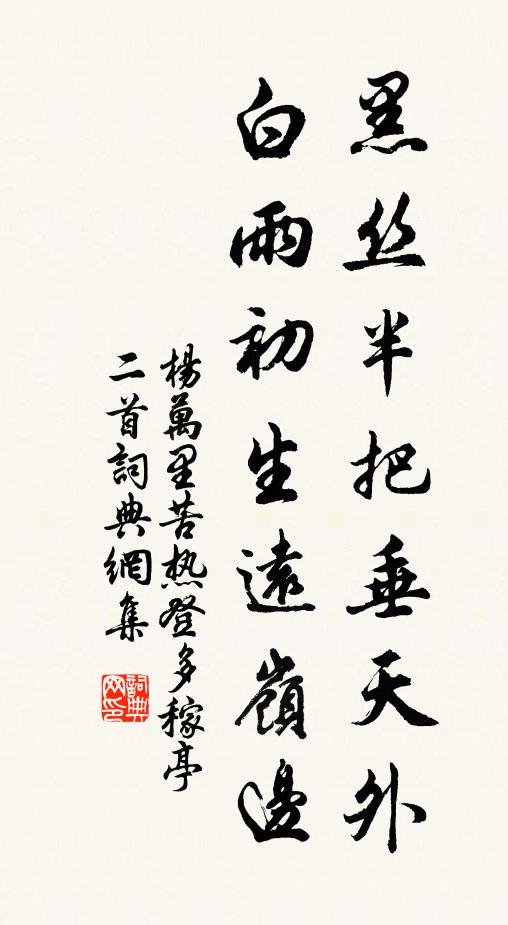 黑丝半把垂天外
白雨初生遠嶺邊
楊萬里苦热登多稼亭
二首詞典網集
詞典
网印